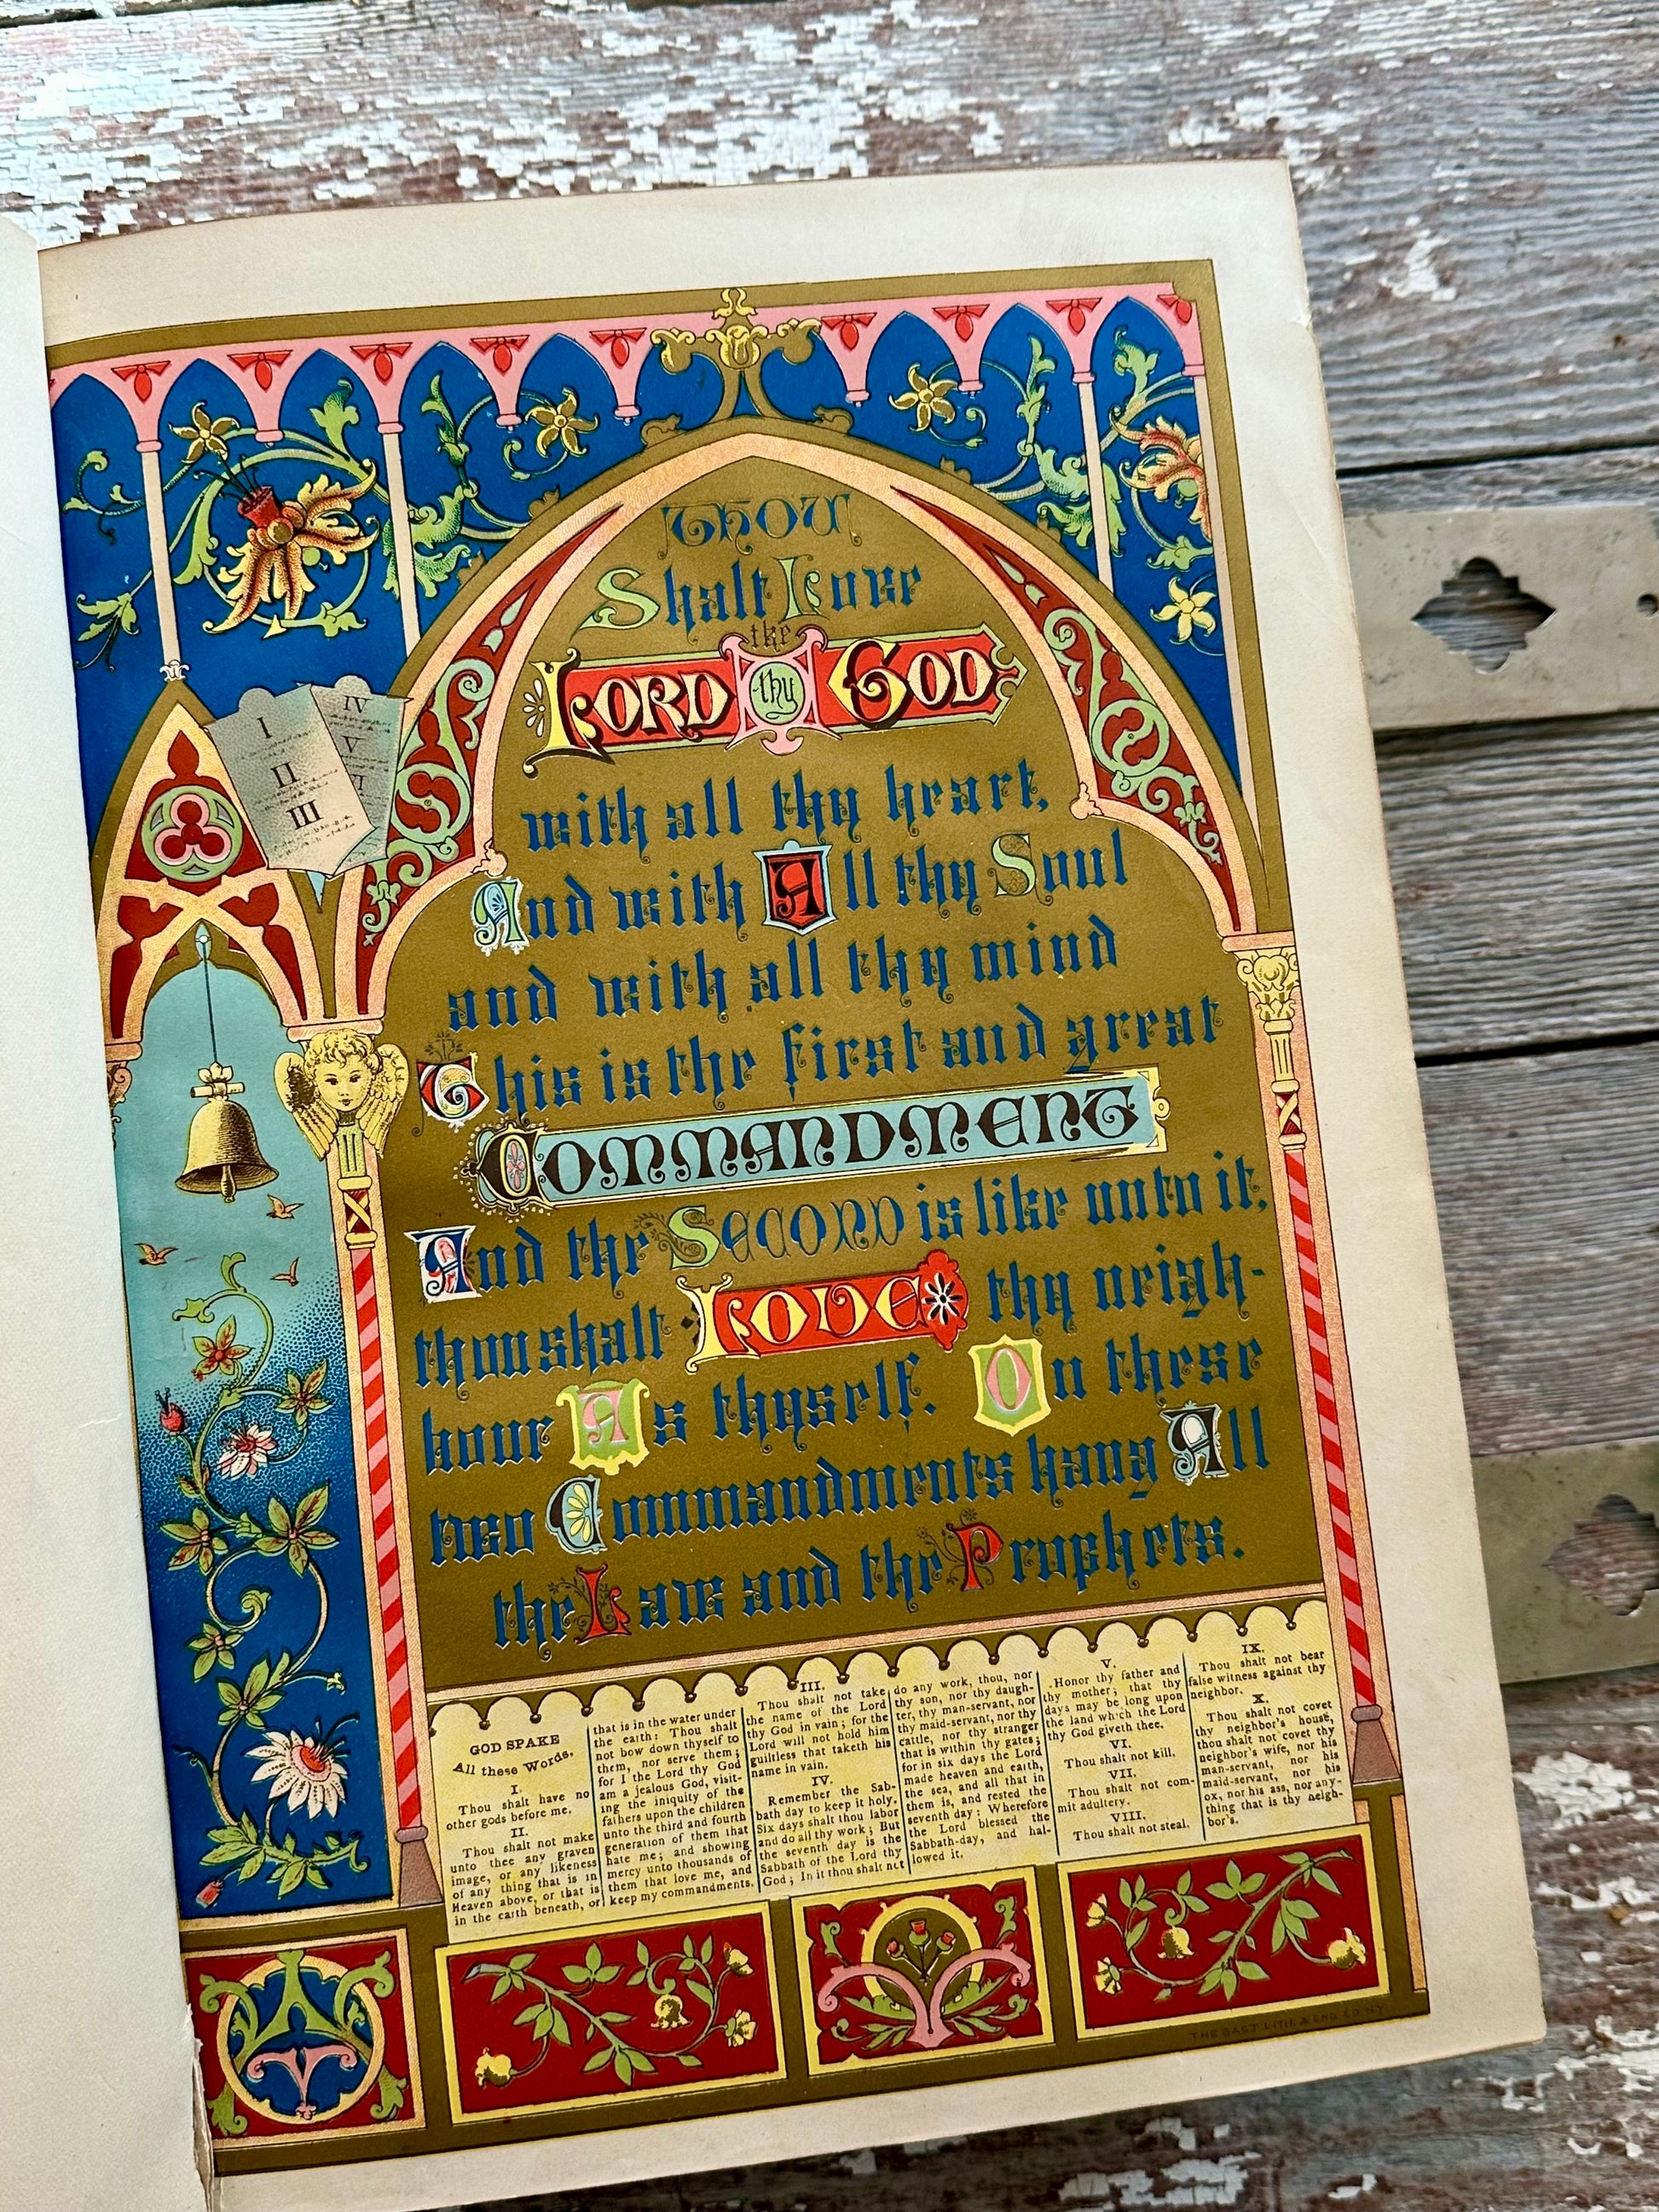 THOU
Shalt Love
the
LORD thy GOD
with all thy heart,
And with All thy Soul
and with all thy mind
This is the first and great
COMMANDMENT
And the SECOND is like unto it,
thou shalt LOVE thy neigh-
bour As thyself. On these
two Commandments hang All
the Law and the Prophets.
I
II
III
IV
V
VI
GOD SPAKE
All these Words,
I.
Thou shalt have no
other gods before me.
II.
Thou shalt not make
unto thee any graven
image, or any likeness
of any thing that is in
Heaven above, or that is
in the earth beneath, or
that is in the water under
the earth: Thou shalt
not bow down thyself to
them, nor serve them;
for I the Lord thy God
am a jealous God, visit-
ing the iniquity of the
fathers upon the children
unto the third and fourth
generation of them that
hate me; and showing
mercy unto thousands of
them that love me, and
keep my commandments.
III.
Thou shalt not take
the name of the Lord
thy God in vain; for the
Lord will not hold him
guiltless that taketh his
name in vain.
IV.
Remember the Sab-
bath day to keep it holy.
Six days shalt thou labor
and do all thy work; But
the seventh day is the
Sabbath of the Lord thy
God; In it thou shalt not
do any work, thou, nor
thy son, nor thy daugh-
ter, thy man-servant, nor
thy maid-servant, nor thy
cattle, nor thy stranger
that is within thy gates;
for in six days the Lord
made heaven and earth,
the sea, and all that in
them is, and rested the
seventh day: Wherefore
the Lord blessed the
Sabbath-day, and hal-
lowed it.
V.
Honor thy father and
thy mother; that thy
days may be long upon
the land which the Lord
thy God giveth thee.
VI.
Thou shalt not kill.
VII.
Thou shalt not com-
mit adultery.
VIII.
Thou shalt not steal.
IX.
Thou shalt not bear
false witness against thy
neighbor.
X.
Thou shalt not covet
thy neighbor's house,
thou shalt not covet thy
neighbor's wife, nor his
man-servant, nor his
maid-servant, nor his
ox, nor his ass, nor any-
thing that is thy neigh-
bor's.
THE GAST LITH. & ENG. CO. N.Y.